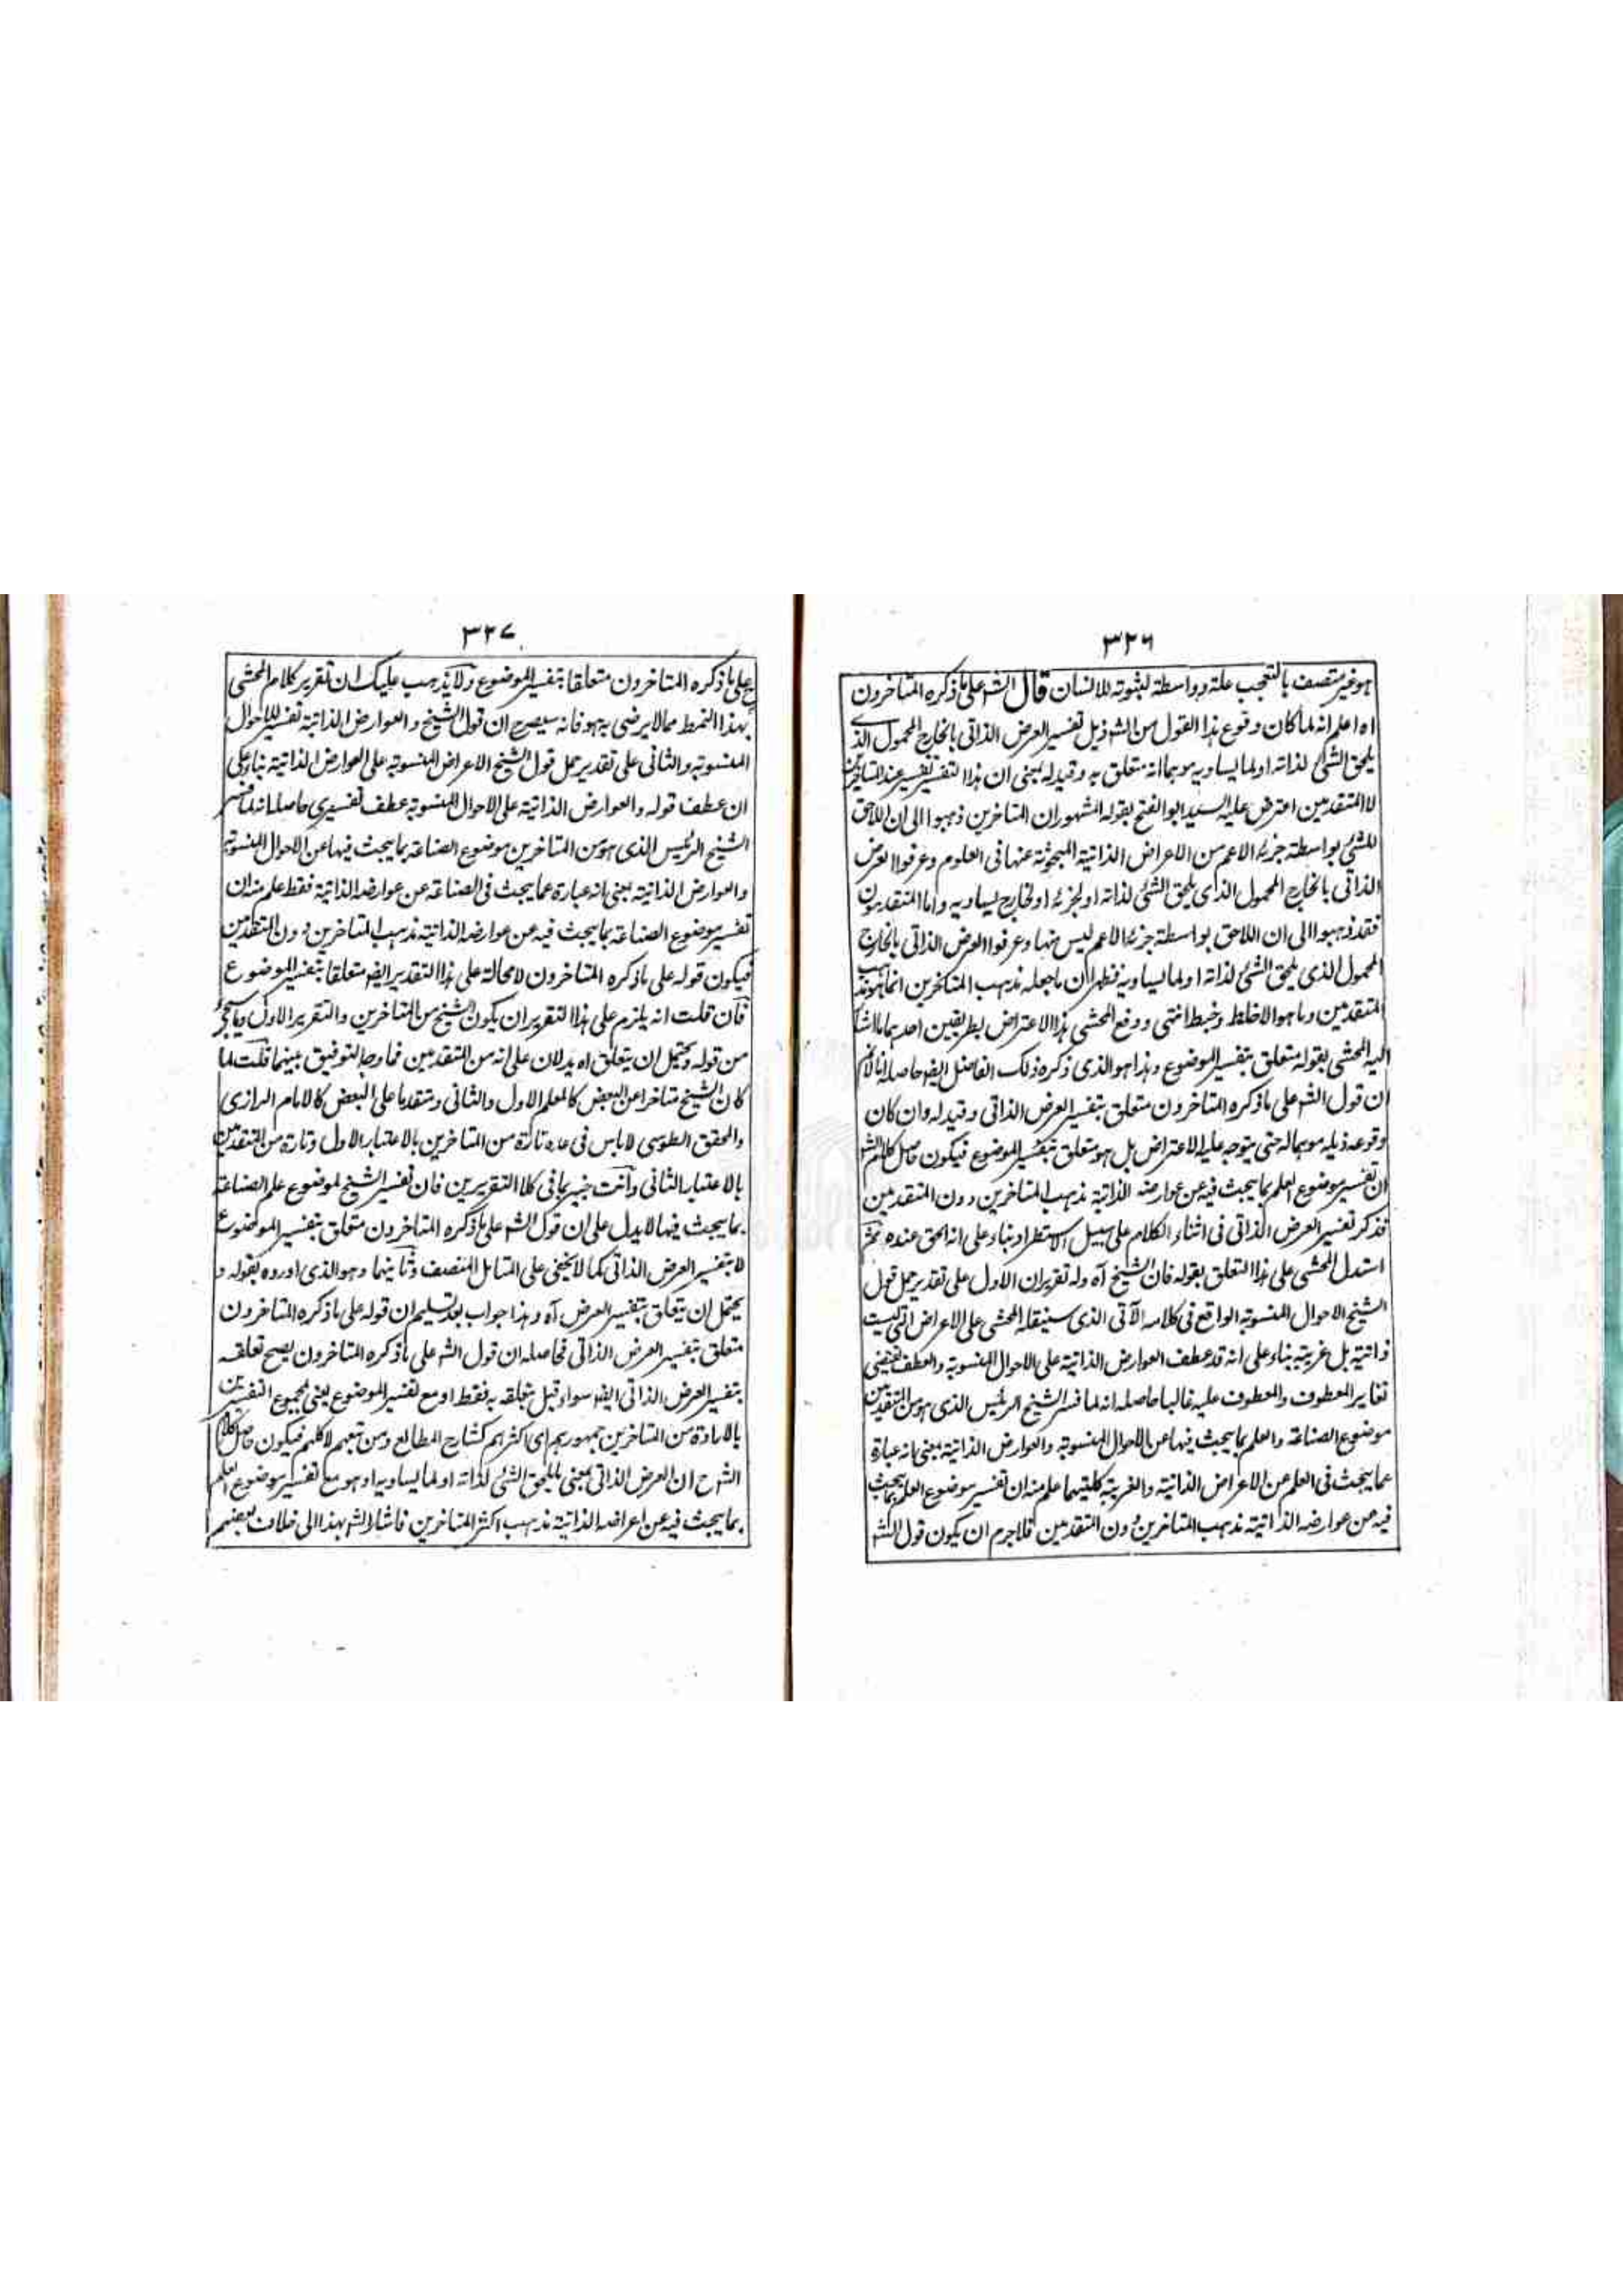 ٣٢٦
هو غير متصف بالتعجب علة وواسطة لثبوته للانسان قال الشه على ما ذكره المتاخرون
اه اعلم انه لما كان وقوع هذا القول من الشه ذيل تفسير العرض الذاتى بالخارج المحمول الذى
يلحق الشئ لذاته او لما يساويه موهما انه متعلق به وقيد له بمعنى ان هذا التفسير تفسير عند المتاخرين
لا المتقدمين اعترض عليه السيد ابو الفتح بقوله المشهور ان المتاخرين ذهبوا الى ان اللاحق
للشئ بواسطة جزئه الاعم من الاعراض الذاتية المبحوثة عنها فى العلوم وعرفوا العرض
الذاتى بالخارج المحمول الذى يلحق الشئ لذاته او لجزئه او لخارج يساويه واما المتقدمون
فقد ذهبوا الى ان اللاحق بواسطة جزئه الاعم ليس منها وعرفوا العرض الذاتى بالخارج
المحمول الذى يلحق الشئ لذاته او لما يساويه فظهر ان ما جعله مذهب المتاخرين انما هو مذهب
المتقدمين وما هو الا خلط وخبط انتهى ودفع المحشى هذا الاعتراض بطريقين احدهما ما اشار
اليه المحشى بقوله متعلق بتفسير الموضوع وهذا هو الذى ذكره ذلك الفاضل ايضا حاصله انا لا نم
ان قول الشه على ما ذكره المتاخرون متعلق بتفسير العرض الذاتى وقيد له وان كان
وقوعه ذيله موهما له حتى يتوجه عليه الاعتراض بل هو متعلق بتفسير الموضوع فيكون حاصل كلام الشه
ان تفسير موضوع العلم بما يبحث فيه عن عوارضه الذاتية مذهب المتاخرين دون المتقدمين
فذكر تفسير العرض الذاتى فى اثناء الكلام على سبيل الاستطراد بناء على انه الحق عنده ثم
استدل المحشى على هذا التعلق بقوله فان الشيخ آه وله تقريران الاول على تقدير حمل قول
الشيخ الاحوال المنسوبة الواقع فى كلامه الآتى الذى سينقله المحشى على الاعراض التى ليست
ذاتية بل غريبة بناء على انه قد عطف العوارض الذاتية على الاحوال المنسوبة والعطف يقتضى
تغاير المعطوف والمعطوف عليه غالبا حاصله انه لما فسر الشيخ الرئيس الذى هو من المتقدمين
موضوع الصناعة والعلم بما يبحث فيها عن الاحوال المنسوبة والعوارض الذاتية بمعنى انه عبارة
عما يبحث فى العلم عن الاعراض الذاتية والغريبة كليتيهما علم منه ان تفسير موضوع العلم بما يبحث
فيه عن عوارضه الذاتية مذهب المتاخرين دون المتقدمين فلا جرم ان يكون قول الشه
٣٢٧
على ما ذكره المتاخرون متعلقا بتفسير الموضوع ولا يذهب عليك ان تقرير كلام المحشى
بهذا النمط مما لا يرضى به هو فانه سيصرح ان قول الشيخ والعوارض الذاتية تفسير للاحوال
المنسوبة والثانى على تقدير حمل قول الشيخ الاعراض المنسوبة على العوارض الذاتية بناء على
ان عطف قوله والعوارض الذاتية على الاحوال المنسوبة عطف تفسيرى حاصله انه لما فسر
الشيخ الرئيس الذى هو من المتاخرين موضوع الصناعة بما يبحث فيها عن الاحوال المنسوبة
والعوارض الذاتية بمعنى انه عبارة عما يبحث فى الصناعة عن عوارضه الذاتية فقط علم منه ان
تفسير موضوع الصناعة بما يبحث فيه عن عوارضه الذاتية مذهب المتاخرين دون المتقدمين
فيكون قوله على ما ذكره المتاخرون لا محالة على هذا التقدير ايضا متعلقا بتفسير الموضوع
فان قلت انه يلزم على هذا التقرير ان يكون الشيخ من المتاخرين والتقرير الاول وما سيجئ
من قوله ويحتمل ان يتعلق اه يدلان على انه من المتقدمين فما وجه التوفيق بينهما قلت لما
كان الشيخ متاخرا عن البعض كالمعلم الاول والثانى ومتقدما على البعض كالامام الرازى
والمحقق الطوسى لا باس فى عده تارة من المتاخرين بالاعتبار الاول وتارة من المتقدمين
بالاعتبار الثانى وانت خبير بما فى كلا التقريرين فان تفسير الشيخ لموضوع علم الصناعة
بما يبحث فيها لا يدل على ان قول الشه على ما ذكره المتاخرون متعلق بتفسير الموضوع
لا بتفسير العرض الذاتى كما لا يخفى على المتامل المنصف وثانيهما وهو الذى اورده بقوله و
يحتمل ان يتعلق بتفسير العرض آه وهذا جواب بعد تسليم ان قوله على ما ذكره المتاخرون
متعلق بتفسير العرض الذاتى فحاصله ان قول الشه على ما ذكره المتاخرون يصح تعلقه
بتفسير العرض الذاتى ايضا سواء قيل بتعلقه به فقط او مع تفسير الموضوع يعنى بمجموع التفسيرين
بالارادة من المتاخرين جمهورهم اى اكثرهم كشارح المطالع ومن تبعهم لا كلهم فيكون حاصل كلام
الشرح ان العرض الذاتى بمعنى ما يلحق الشئ لذاته او لما يساويه او هو مع تفسير موضوع العلم
بما يبحث فيه عن اعراضه الذاتية مذهب اكثر المتاخرين فاشار الشه بهذا الى خلاف بعضهم